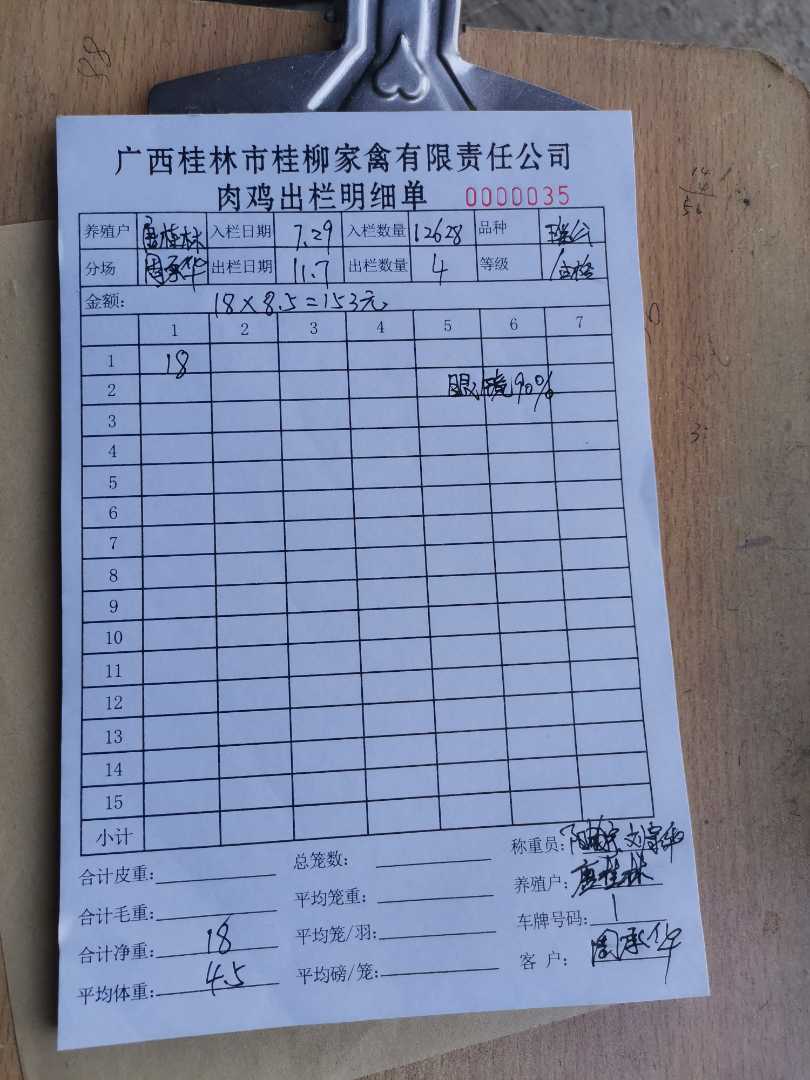 广西桂林市桂柳家禽有限责任公司
肉鸡出栏明细单 0000035
养殖户 唐桂林 入栏日期 7.29 入栏数量 12628 品种
分场 周承华 出栏日期 11.7 出栏数量 4 等级
金额: 18×8.5=153元
1 2 3 4 5 6 7
1 18
2 眼镜90%
3
4
5
6
7
8
9
10
11
12
13
14
15
小计
合计皮重: 总笼数: 称重员:
合计毛重: 平均笼重: 养殖户: 唐桂林
合计净重: 18 平均笼/羽: 车牌号码:
平均体重: 4.5 平均磅/笼: 客户: 周承华